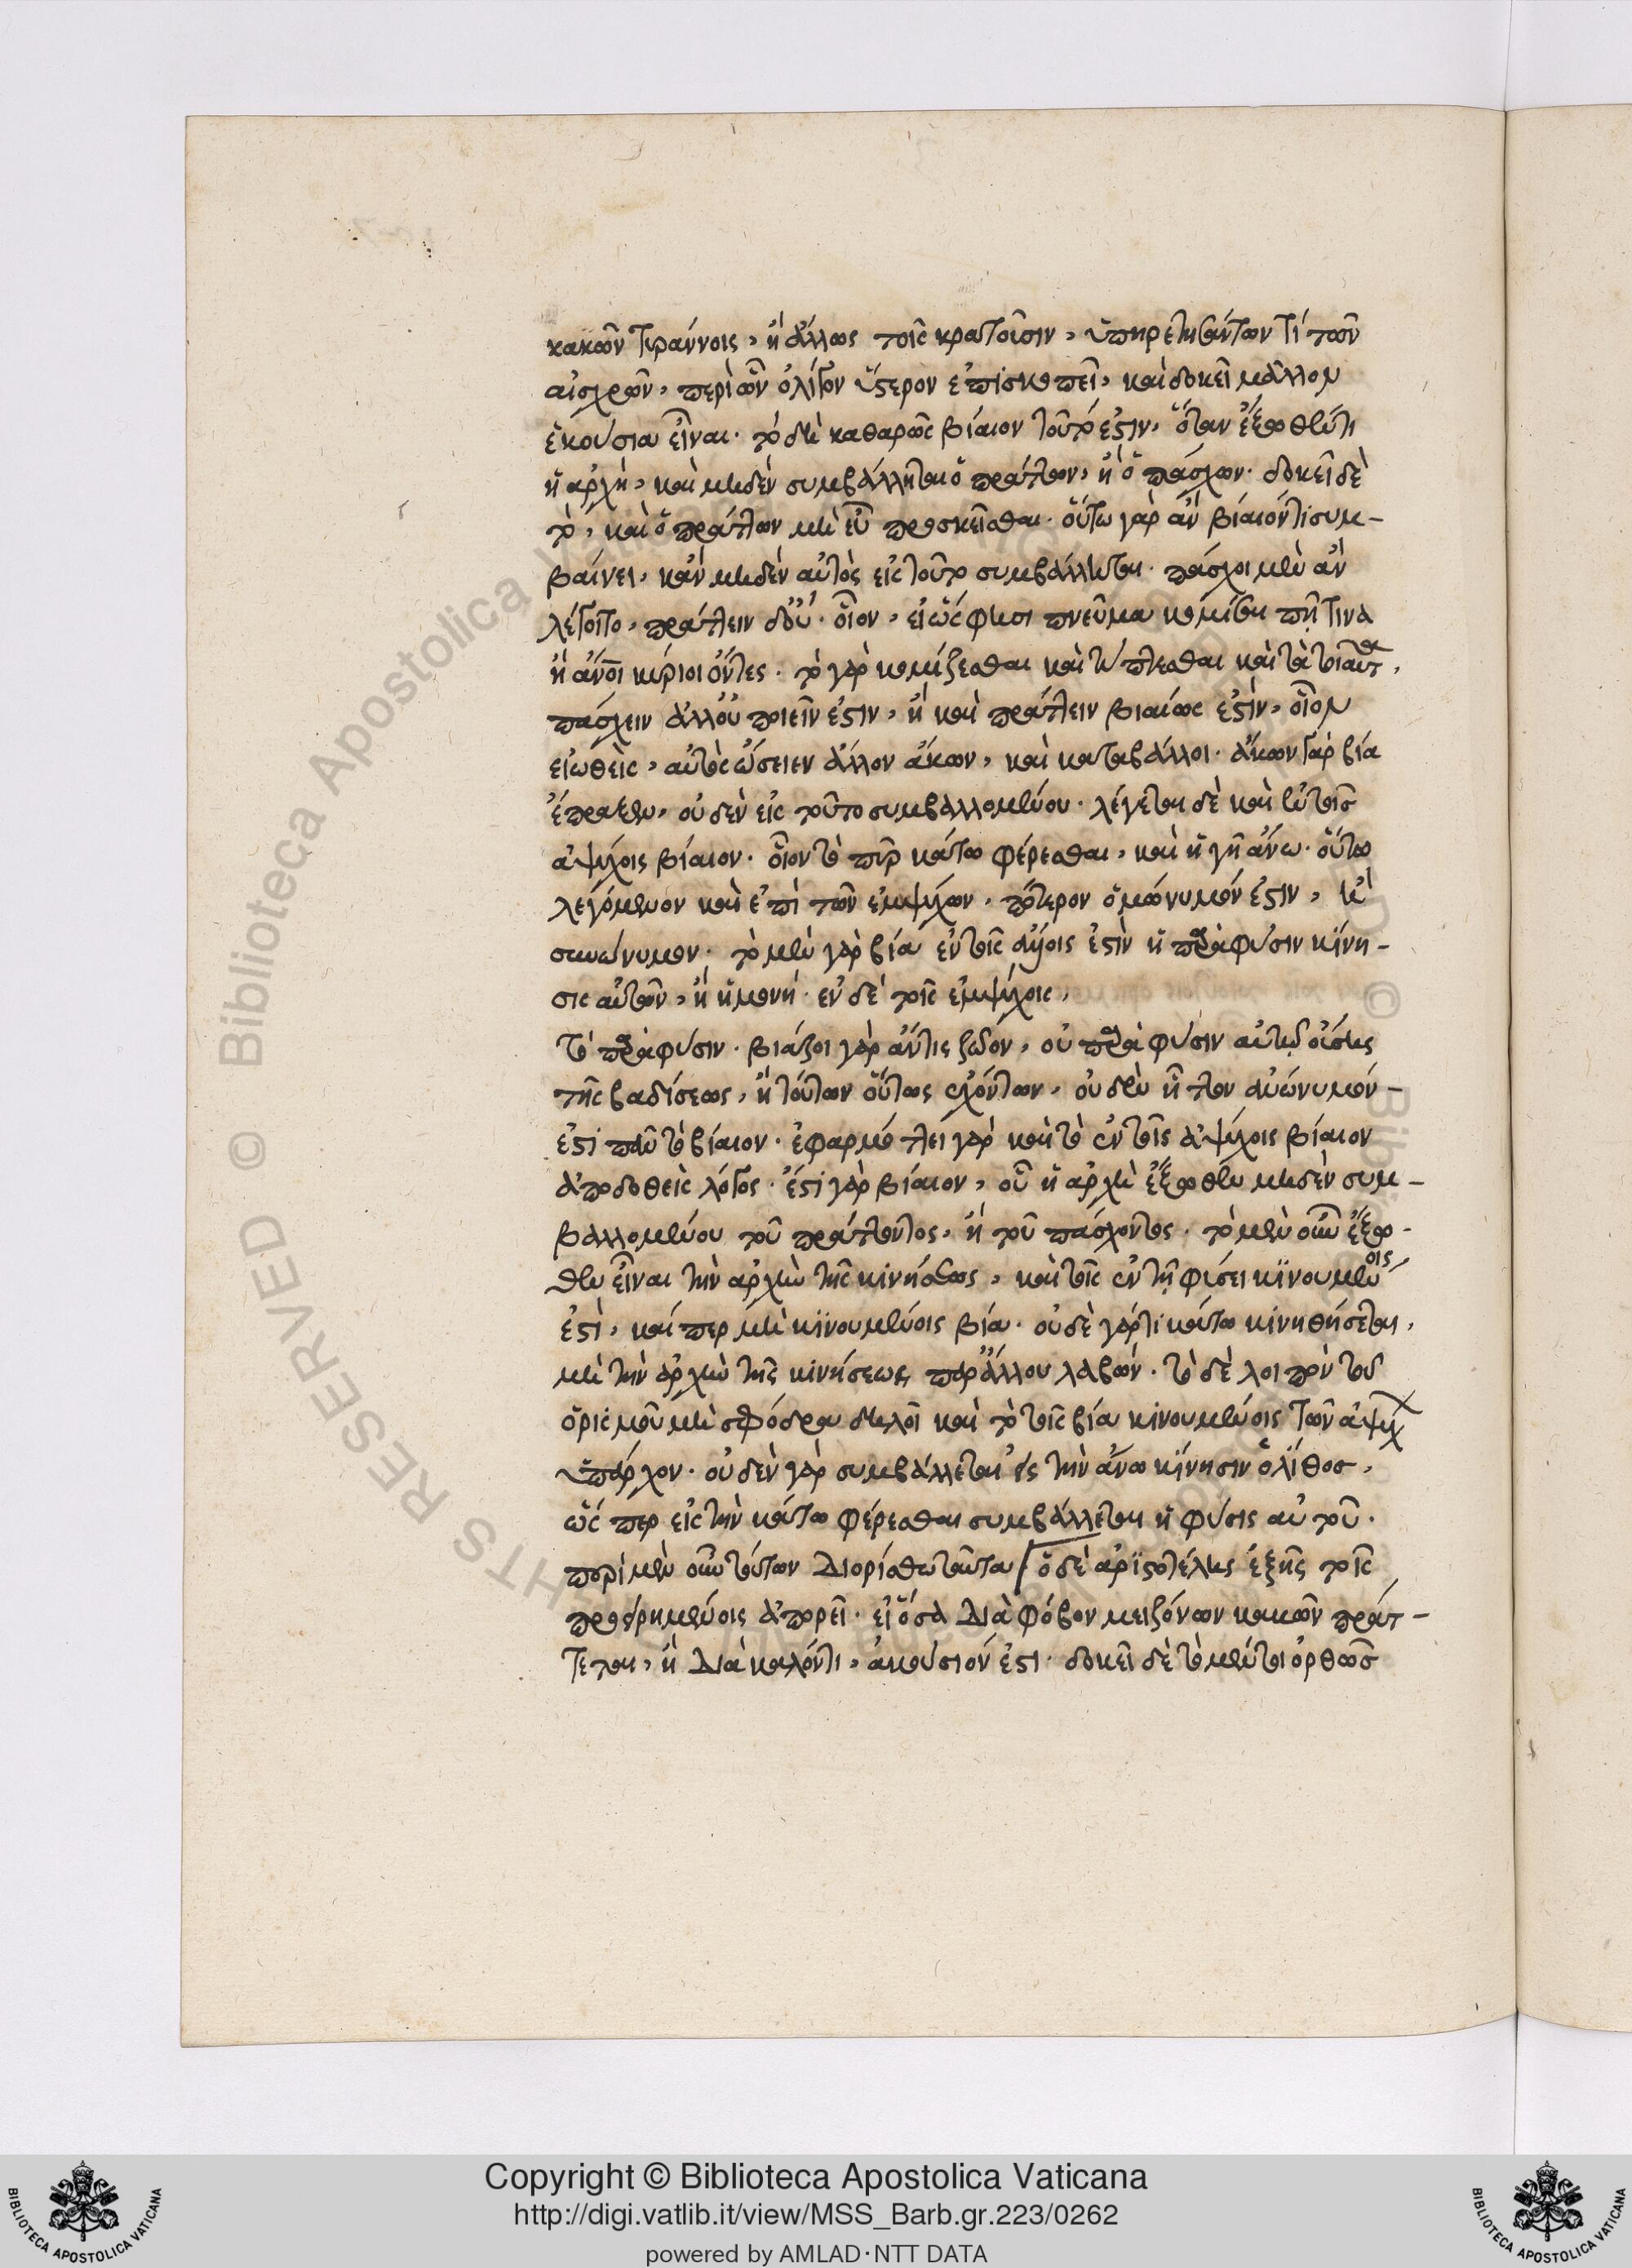 κακῶν τυράννοις, ἢ ἄλλως τοῖς κρατοῦσιν, ὑπηρετησάντων τί τῶν
αἰσχρῶν, περὶ ὧν ὀλίγον ὕστερον ἐπισκοπεῖ, καὶ δοκεῖ μᾶλλον
ἑκούσια εἶναι. τὸ δὲ καθαρῶς βίαιον τοῦτό ἐστιν, ὅταν ἔξωθεν τι
ἡ ἀρχὴ, καὶ μηδὲν συμβάλληται ὁ πράττων, ἢ ὁ πάσχων. δοκεῖ δὲ
τὸ, καὶ ὁ πράττων μὴ εὖ προσκεῖσθαι. οὕτω γὰρ ἂν βίαιόν τι συμ-
βαίνει, κἂν μηδὲν αὐτὸς εἰς τοῦτο συμβάλληται. πάσχοι μὲν ἂν
λέγοιτο, πράττειν δ' οὔ. οἷον, εἰ ὥς φησι πνεῦμα κομίσαι πῇ τινὰ
ἢ ἄνοι κύριοι ὄντες. τὸ γὰρ κομίζεσθαι καὶ τύπτεσθαι καὶ τὰ τοιαῦτα,
πάσχειν ἀλλ' οὐ ποιεῖν ἐστιν, ἢ καὶ πράττειν βιαίως ἐστὶν, οἷον
εἰ ὠθεὶς, αὐτὸς ὤσειεν ἄλλον ἄκων, καὶ καταβάλλοι. ἄκων γὰρ βία
ἔπραξεν, οὐδὲν εἰς τοῦτο συμβαλλομένου. λέγεται δὲ καὶ ἐν τοῖς
ἀψύχοις βίαιον. οἷον τὸ πῦρ κάτω φέρεσθαι, καὶ ἡ γῆ ἄνω. οὕτω
λεγόμενον καὶ ἐπὶ τῶν ἐμψύχων. πότερον ὁμώνυμόν ἐστιν, ἢ
συνώνυμον. τὸ μὲν γὰρ βία ἐν τοῖς ἀψύχοις ἐστὶν ἡ παρὰ φύσιν κίνη-
σις αὐτῶν, ἢ ἡ μονή. ἐν δὲ τοῖς ἐμψύχοις,
τὸ παρὰ φύσιν. βιάζοι γὰρ ἄν τις ζῶον, οὐ παρὰ φύσιν αὐτῷ οὔσης
τῆς βαδίσεως, ἢ τούτων οὕτως ἐχόντων, οὐδὲν ἧττον συνώνυμόν-
ἐστι πᾶν τὸ βίαιον. ἐφαρμόττει γὰρ καὶ τὸ ἐν τοῖς ἀψύχοις βίαιον
ἀποδοθεὶς λόγος. ἔστι γὰρ βίαιον, οὗ ἡ ἀρχὴ ἔξωθεν μηδὲν συμ-
βαλλομένου τοῦ πράττοντος, ἢ τοῦ πάσχοντος. τὸ μὲν οὖν ἔξω-
θεν εἶναι τὴν ἀρχὴν τῆς κινήσεως, καὶ τοῖς ἐν τῇ φύσει κινουμένοις
ἐστὶ, καί περ μὴ κινουμένοις βία. οὐδὲ γάρ τι κάτω κινηθήσεται,
μὴ τὴν ἀρχὴν τῆς κινήσεως παρ' ἄλλου λαβών. τὸ δὲ λοιπὸν τοῦ
ὁρισμοῦ μὴ σφόδρα δηλοῖ καὶ τὸ τοῖς βία κινουμένοις τῶν ἀψύχ
ὑπάρχον. οὐδὲν γὰρ συμβάλλεται εἰς τὴν ἄνω κίνησιν ὁ λίθος,
ὥς περ εἰς τὴν κάτω φέρεσθαι συμβάλλεται ἡ φύσις αὐτοῦ.
περὶ μὲν οὖν τούτων διορίσθω ταῦτα ὁ δὲ ἀριστοτέλης ἑξῆς τοῖς
προειρημένοις ἀπορεῖ. εἰ ὅσα διὰ φόβον μειζόνων κακῶν πράτ-
τεται, ἢ διὰ καλόν τι, ἀκούσιόν ἐστι. δοκεῖ δὲ τὸ μέντοι ὀρθῶς
Copyright © Biblioteca Apostolica Vaticana
http://digi.vatlib.it/view/MSS_Barb.gr.223/0262
powered by AMLAD·NTT DATA